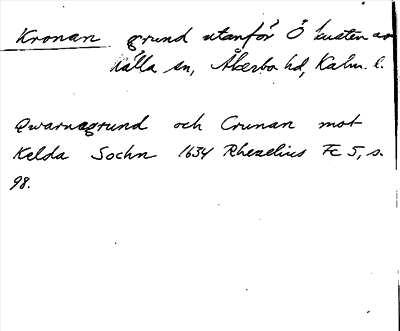 Kronan grund utanför Ö kusten av
Källa sn, Åkerbo hd, Kalm. l.
Qwarnegrund och Crunan mot
Kelda Sochn 1634 Rhezelius Fc 5, s.
98.